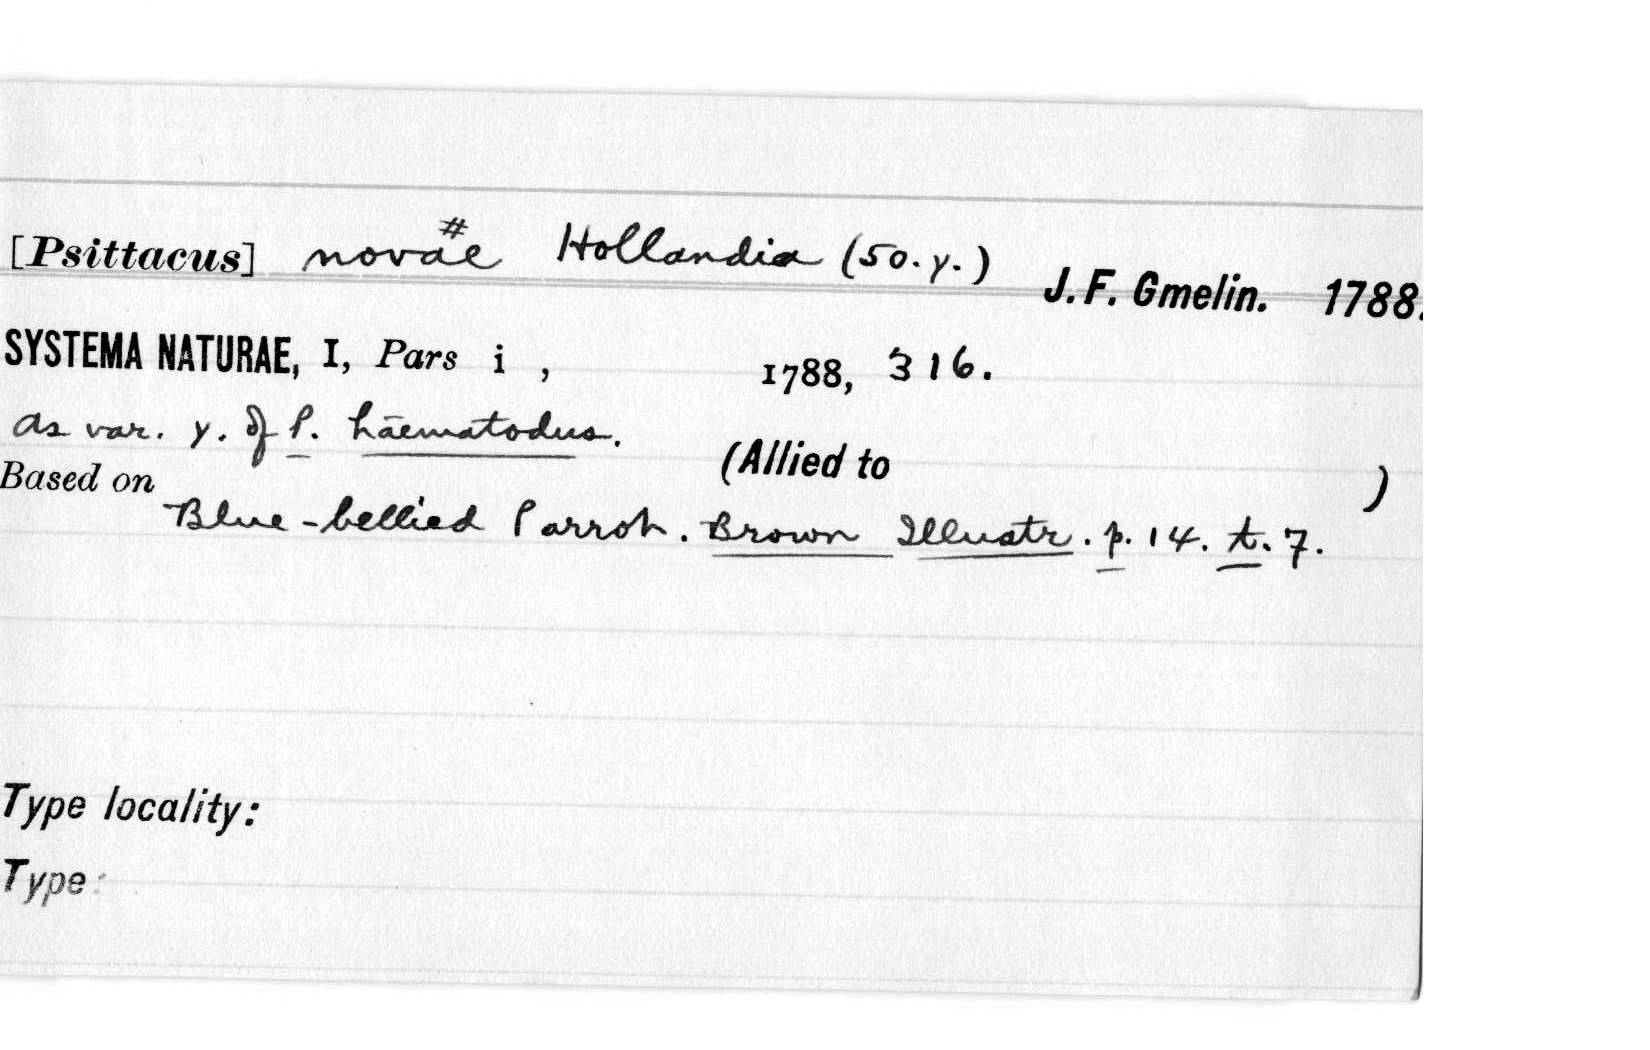 [Psittacus] novae # Hollandia (50. y.) J. F. Gmelin. 1788.
SYSTEMA NATURAE, I, Pars i , 1788, 316.
as var. y. of P. haematodus.
(Allied to )
Based on
Blue-bellied Parrot. Brown Illustr. p. 14. t. 7.
Type locality:
Type: